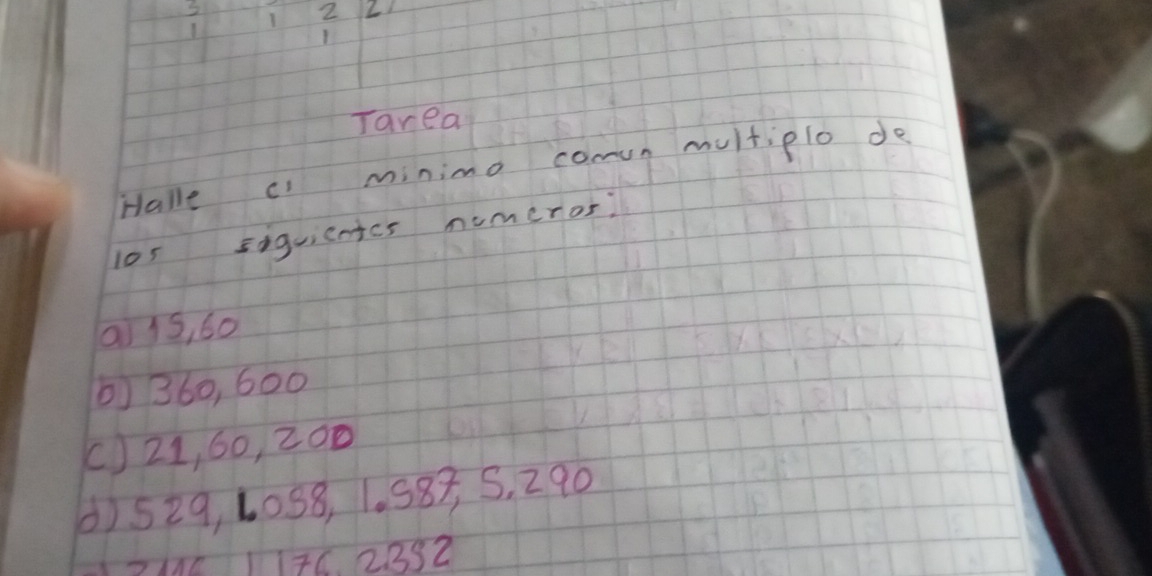 3 1 2 2
1 1
Tarea
Halle el minimo comun multiplo de
los siguientes numeros:
a) 15,60
b) 360,600
c) 21,60,200
d) 529, 1.058, 1.587, 5.290
1 176, 2352